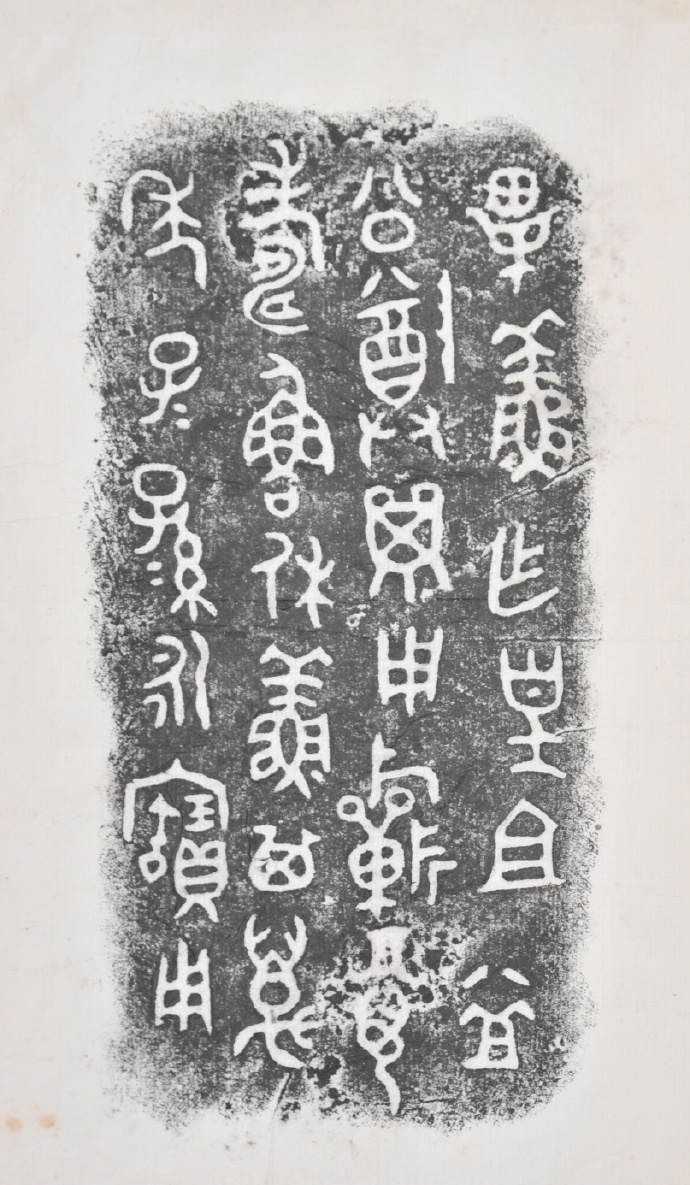 畢鮮乍皇且益
公尊簋用旂眉
壽魯休鮮其萬
年子=孫=永寶用